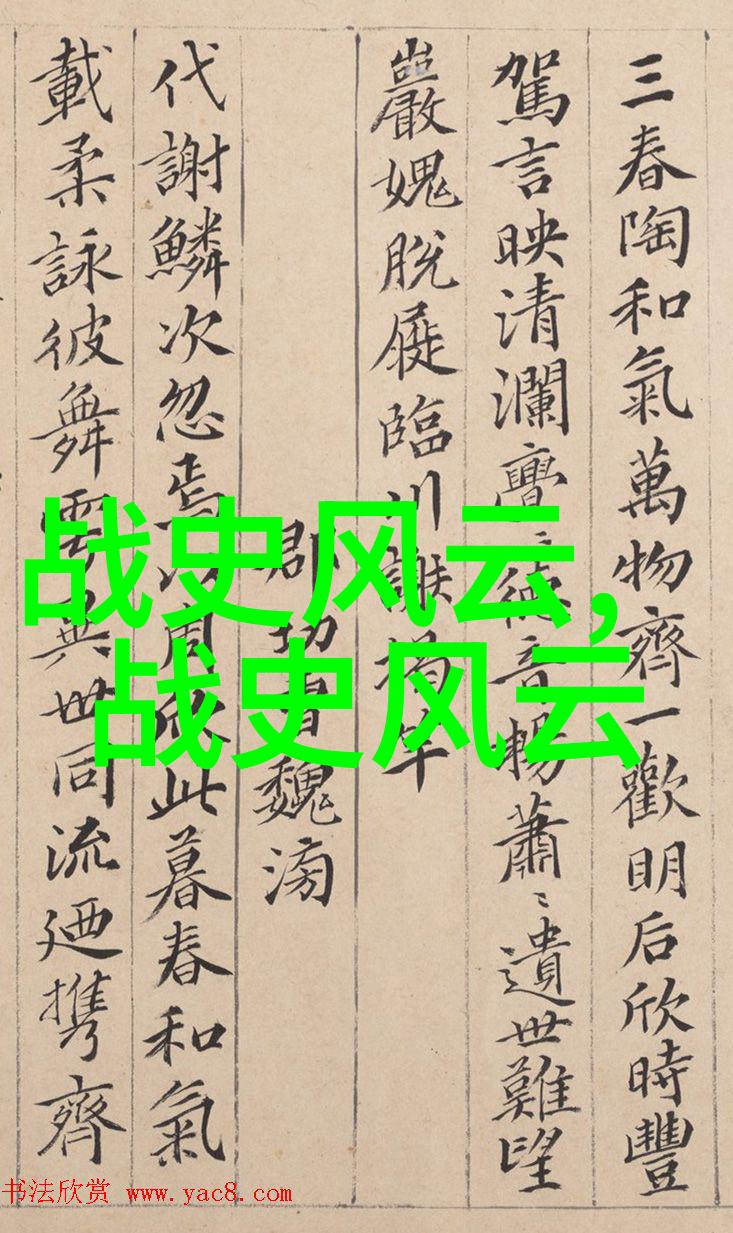 三春陶和氣萬物齊一歡明后欣時豐
駕言映清瀾亹〻德音暢蕭〻遺世難望
巖愧脫屣臨川謝揭竿
郡功曹魏滂
代謝鱗次忽焉以周欣此暮春和氣
載柔詠彼舞雩異世同流迺携齊
战史风云，
战史风云
书法欣赏 www.yac8.com